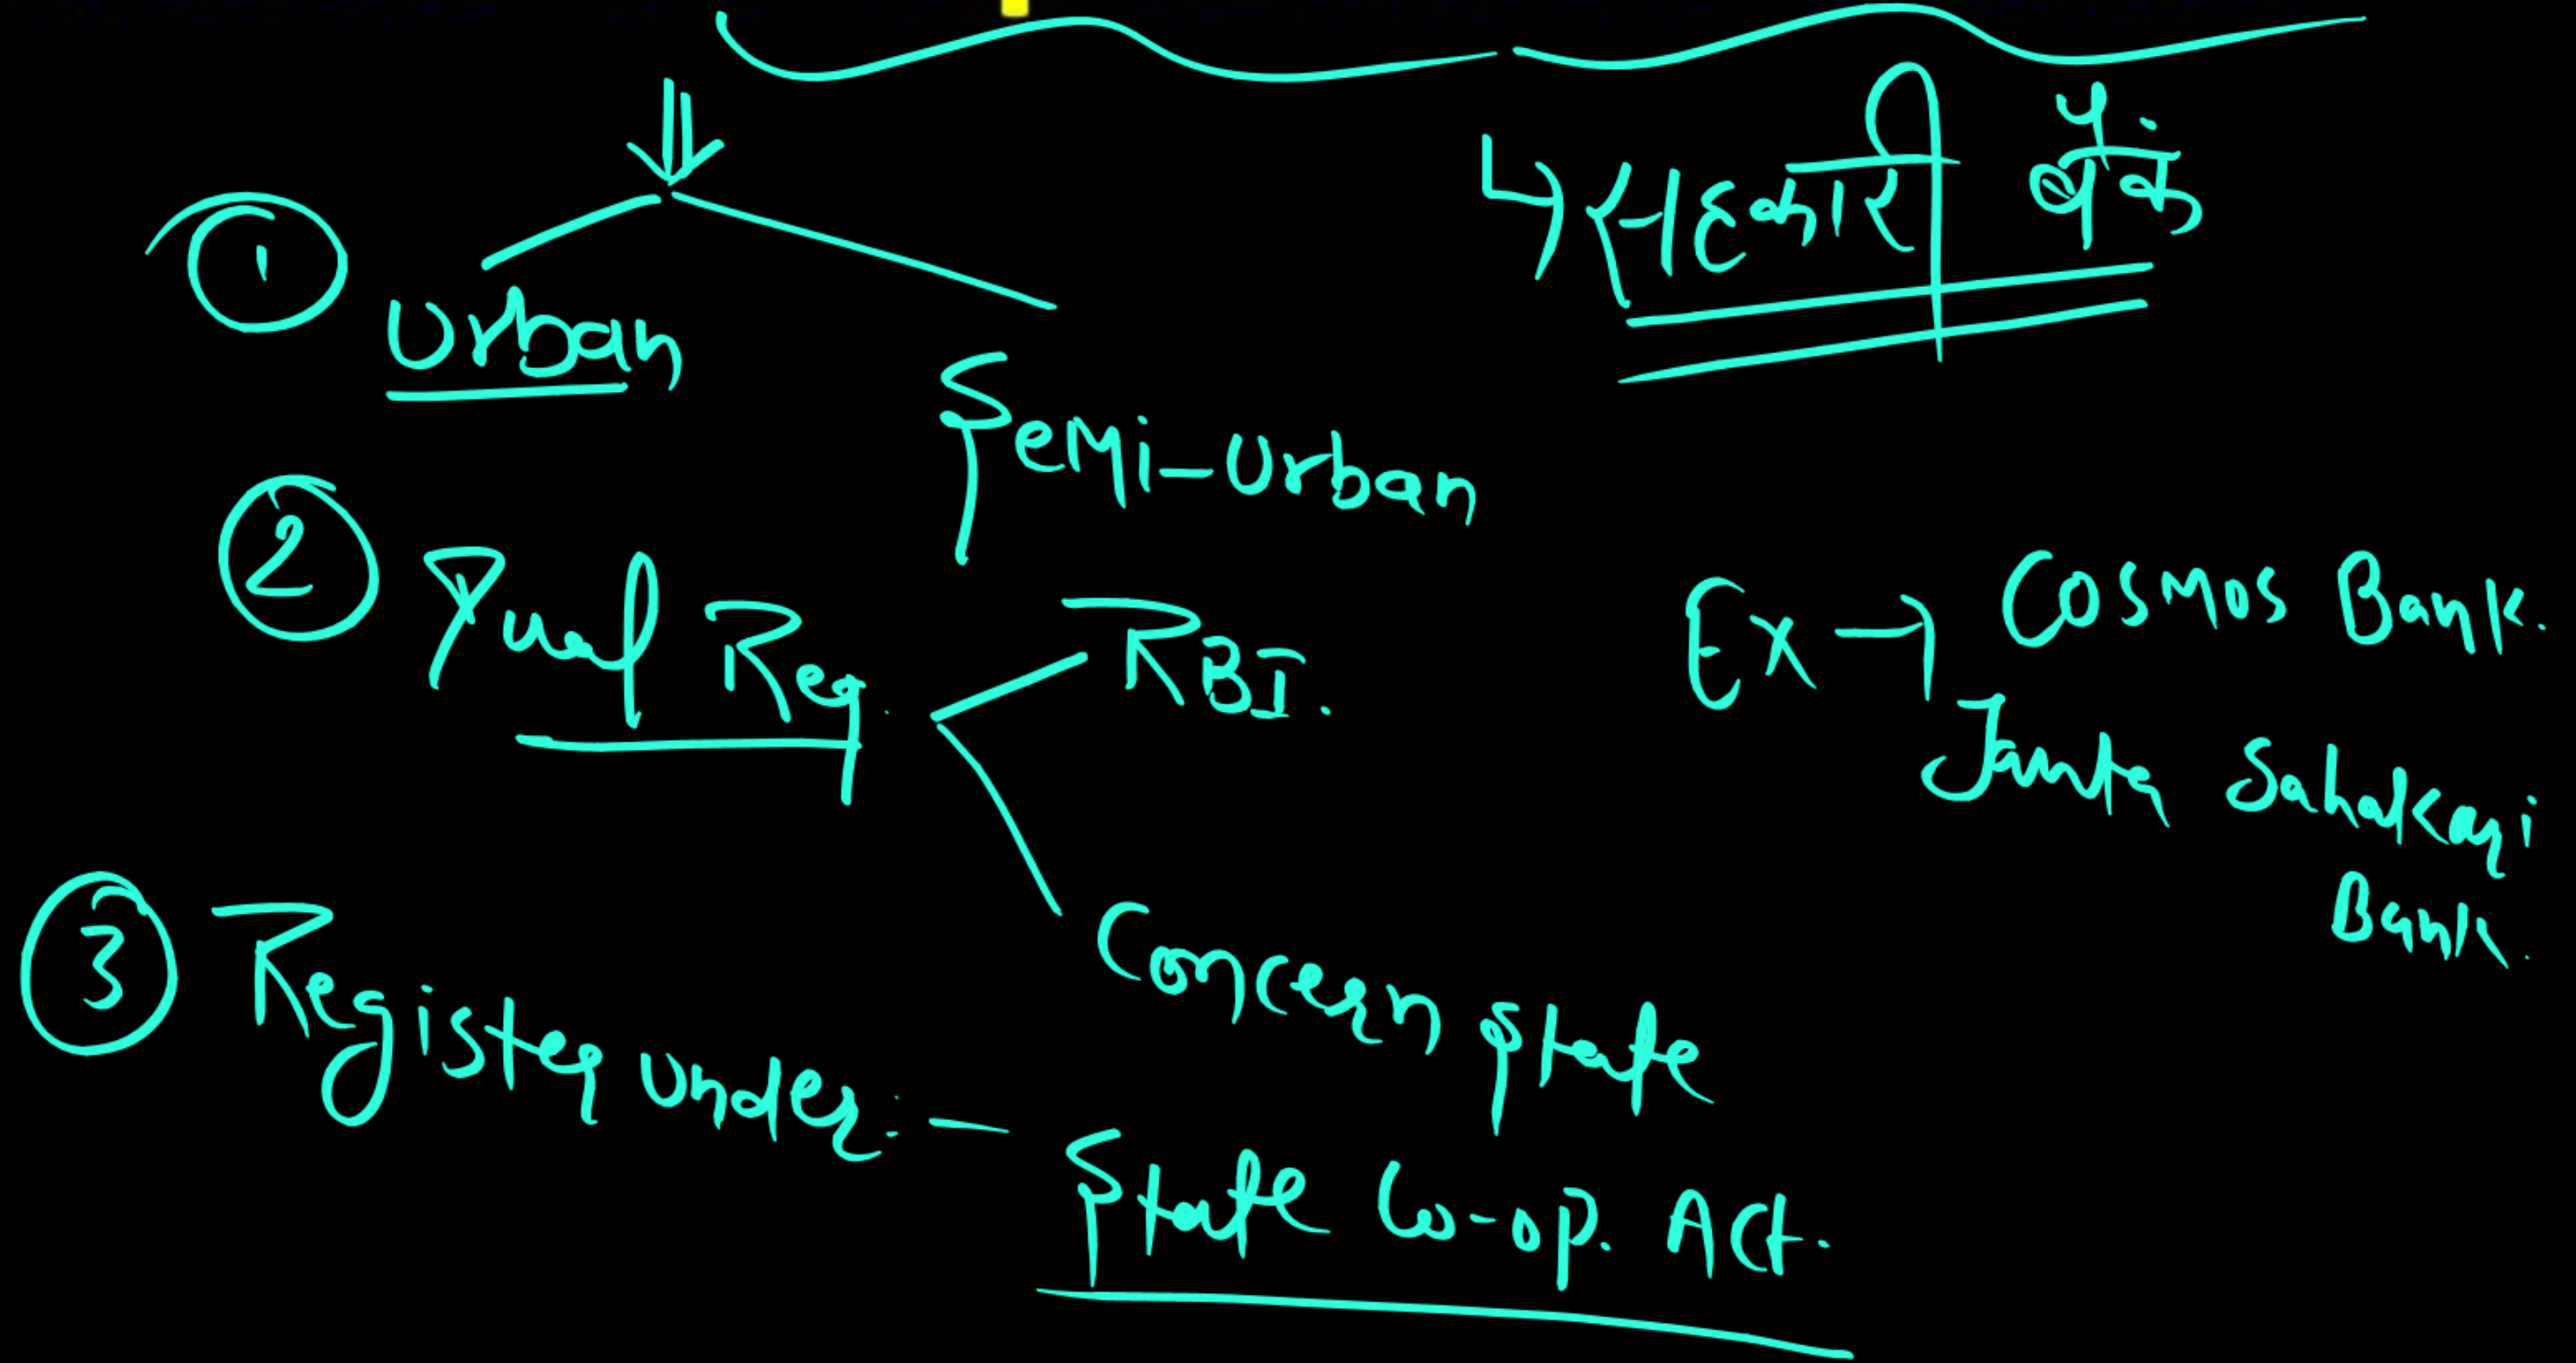 ↳ सहकारी बैंक
① Urban
Semi-Urban
② Dual Reg.
RBI.
Concern State
Ex → Cosmos Bank.
Janta Sahakari
Bank.
③ Register Under: —
State Co-op. Act.